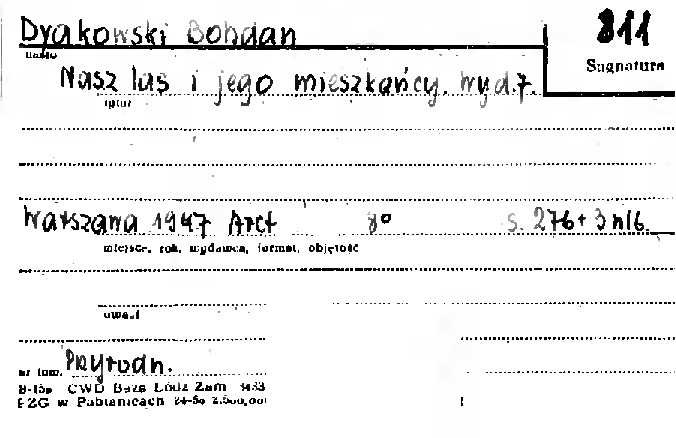 Dyakowski Bohdan
811
hasło
Sygnatura
Nasz las i jego mieszkańcy. Wyd. 7.
tytuł
Warszawa 1947 Arct 8° s. 276 + 3 nlb.
miejsce, rok, wydawca, format, objętość
uwagi
nr inw. Przyrodn.
CWD Baza Łódź Zam
PZG w Pabianicach